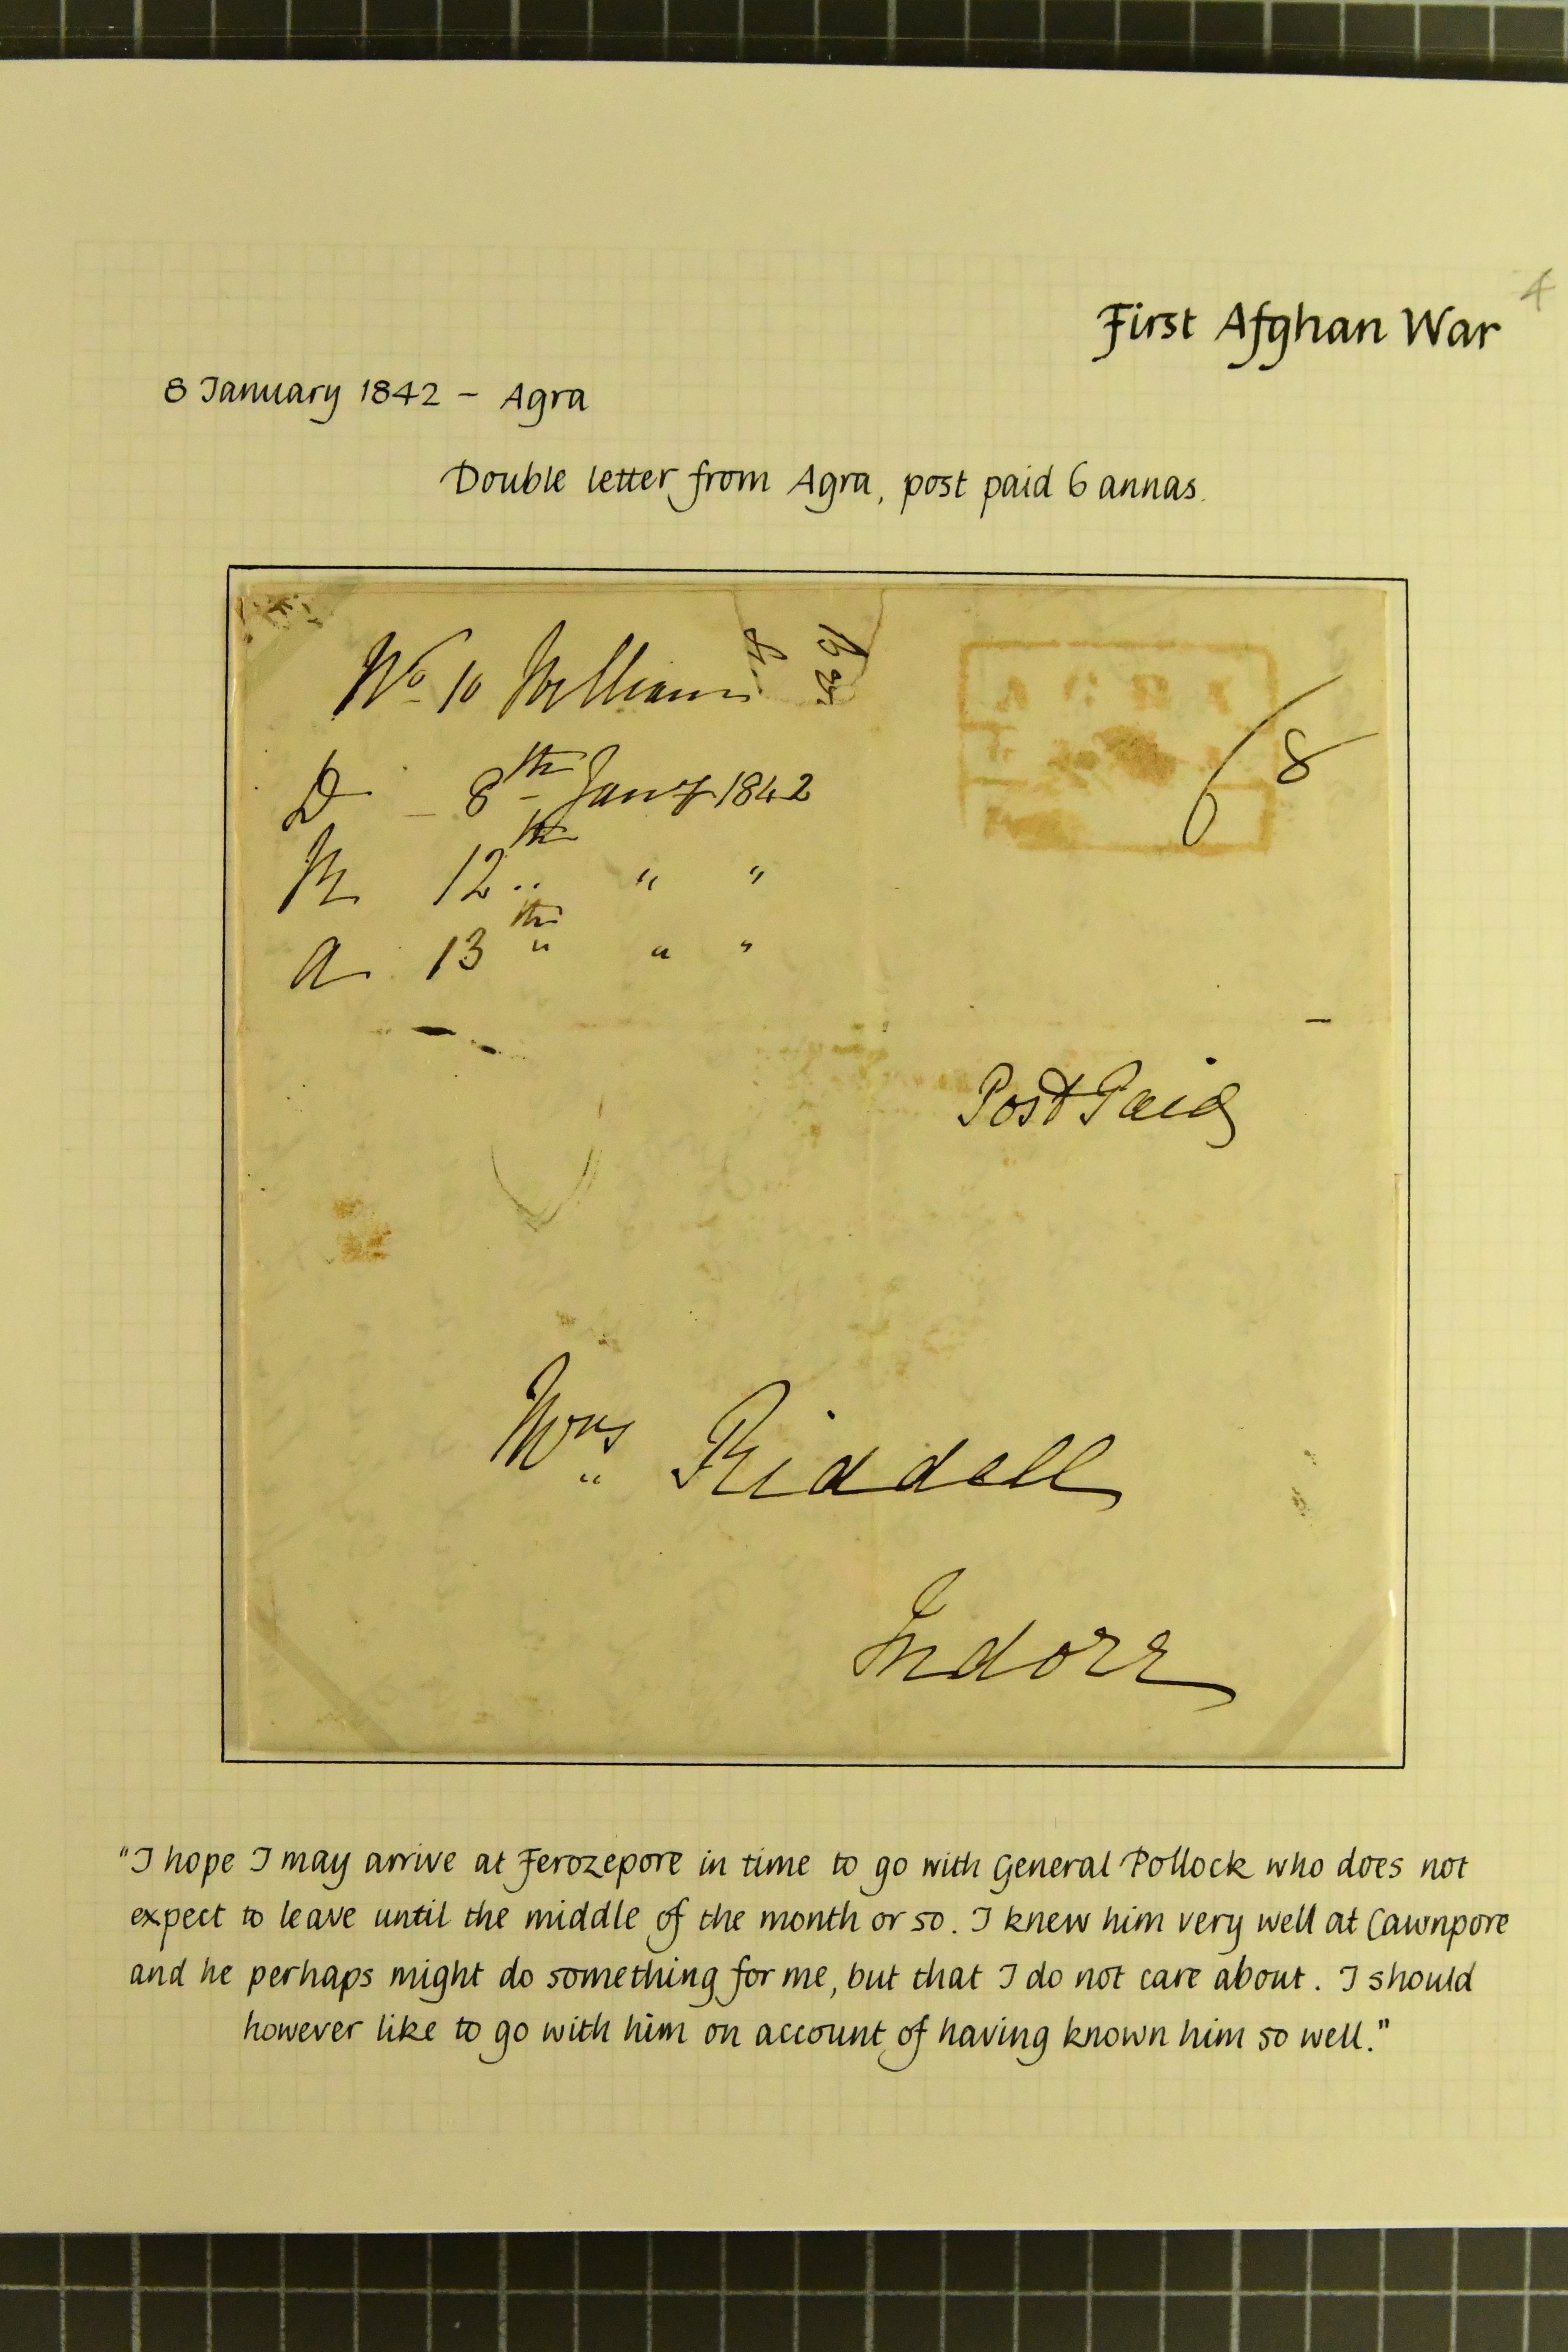 4
First Afghan War
8 January 1842 – Agra
Double letter from Agra, post paid 6 annas.
No 10 William
D 8th Jany 1842
R 12th " "
A 13th " " "
AGRA
6 8
Post Paid
Mrs Riddell
Indore
"I hope I may arrive at Ferozepore in time to go with General Pollock who does not
expect to leave until the middle of the month or so. I knew him very well at Cawnpore
and he perhaps might do something for me, but that I do not care about. I should
however like to go with him on account of having known him so well."